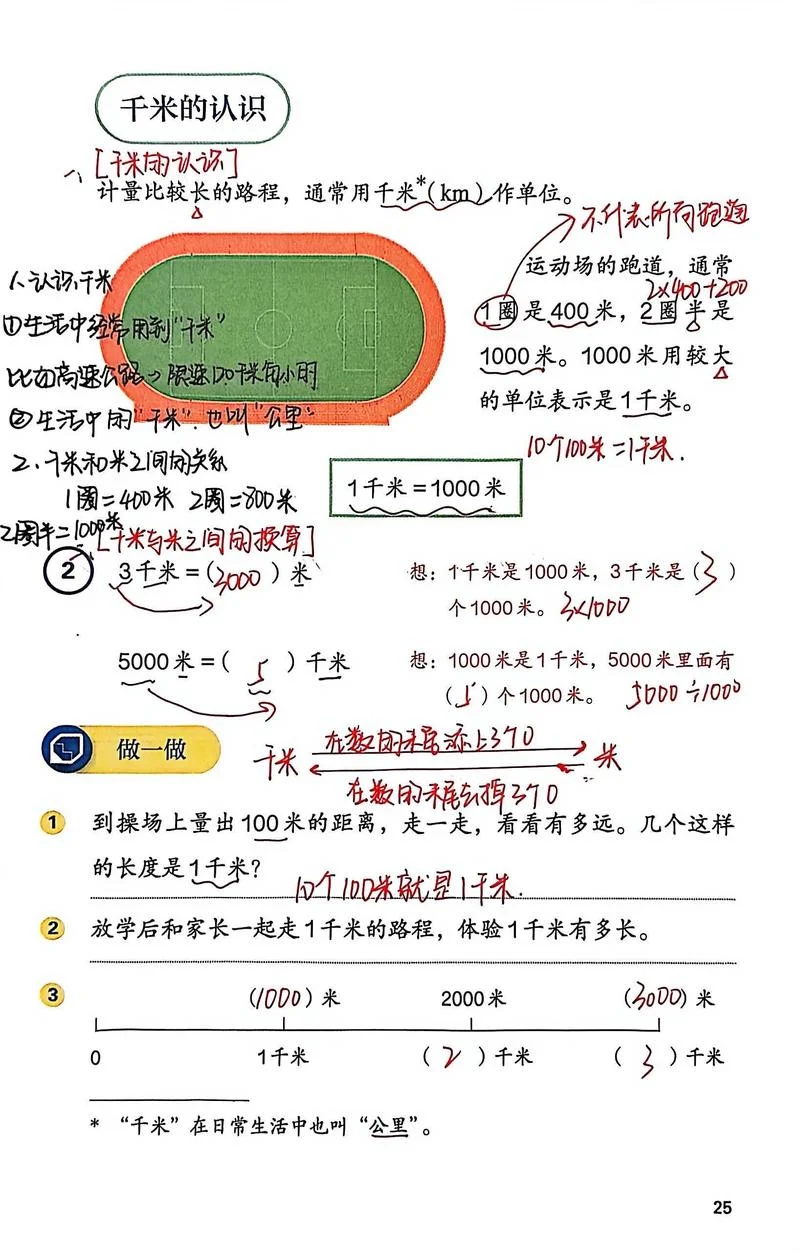 千米的认识
一、[千米的认识]
计量比较长的路程，通常用千米*(km)作单位。
不代表所有跑道
运动场的跑道，通常
2×400+200
1圈是400米，2圈半是
1000米。1000米用较大
的单位表示是1千米。
10个100米=1千米.
1、认识千米
①生活中经常用到"千米"
比如高速公路→限速120千米每小时
②生活中的"千米"也叫"公里"
2、千米和米之间的关系
1圈=400米 2圈=800米
2圈半=1000米
1千米=1000米
[千米与米之间的换算]
2 3千米=(3000)米
想：1千米是1000米，3千米是(3)
个1000米。3×1000
5000米=(5)千米
想：1000米是1千米，5000米里面有
(5)个1000米。 5000÷1000
做一做
在数的末尾添上3个0
千米 米
在数的末尾去掉3个0
1 到操场上量出100米的距离，走一走，看看有多远。几个这样
的长度是1千米？
10个100米就是1千米.
2 放学后和家长一起走1千米的路程，体验1千米有多长。
3 (1000)米 2000米 (3000)米
0 1千米 (2)千米 (3)千米
* "千米"在日常生活中也叫"公里"。
25